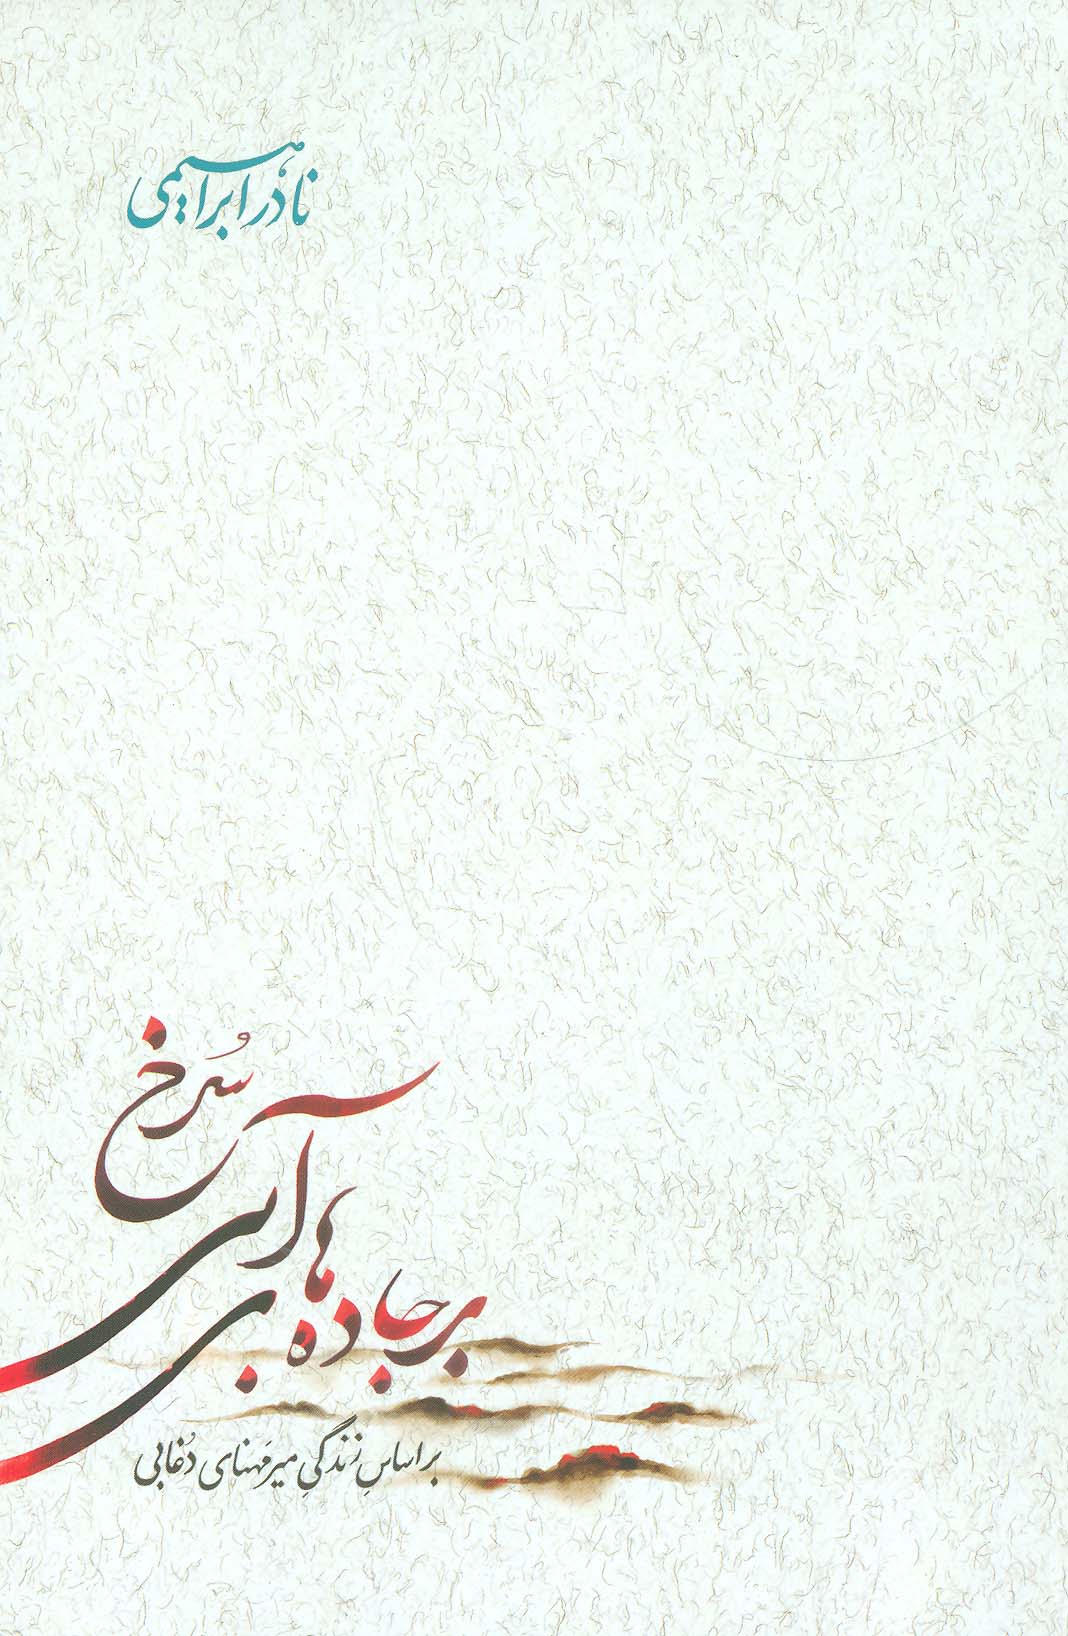 نادر ابراهیمی
بر جاده‌های آبی سُرخ
بر اساسِ زندگیِ میرمَهنای دُغابی